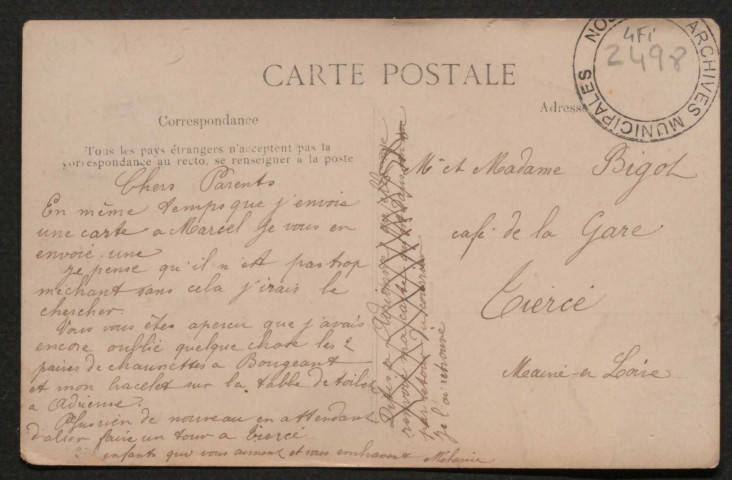 CARTE POSTALE
Correspondance
Tous les pays étrangers n'acceptent pas la
correspondance au recto, se renseigner à la poste
Adresse
ARCHIVES MUNICIPALES
4Fi
2498
Chers Parents
En même temps que j'envoie
une carte a Marcel je vous en
envoie une
je pense qu'il n'est pas trop
méchant sans cela j'irais le
chercher.
Vous vous êtes aperçu que j'avais
encore oublié quelque chose les 2
paires de chaussettes a Bougeant
et mon bracelet sur la table de toilet
a Adrienne.
Plus rien de nouveau en attendant
d'aller faire un tour a Tiercé
enfants que vous aiment et vous embrassent Mélanie
Dites a Adrienne qu'elle me
renvoie ma
par retour du courrier
je l'ai retrouvé
Mr et Madame Bigot
café de la Gare
Tiercé
Maine et Loire